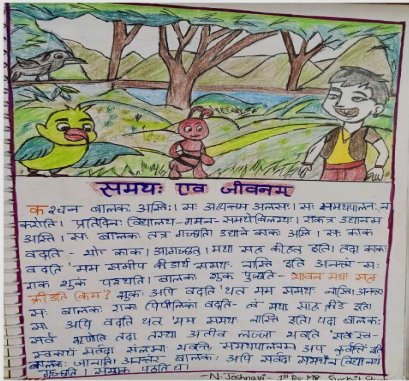 समयः एव जीवनम्
कश्चन बालकः अस्ति। सः अत्यन्तम् अलसः। सः समयपालनं न
करोति। प्रतिदिनं विद्यालय-गमन-समये विलम्बः। एकत्र उद्यानम्
अस्ति। सः बालकः तत्र गच्छति उद्याने काकः अस्ति। सः काकं
वदति - भो काक! आगच्छतु। मया सह क्रीडतु इति। तदा काकः
वदति मम समीपे क्रीडार्थं समयः नास्ति इति अनन्तरं सः
एकं शुकं पश्यति। बालकः शुकं पृच्छति-
क्रीडति किम्? शुकः अपि वदति यत् मम समयः नास्ति।
सः बालकः एकां पिपीलिकां वदति- त्वं मया सह क्रीड इति।
सा अपि वदति यत् मम समयः नास्ति इति। यदा बालकः
सर्वं शृणोति तदा तस्य अतीव लज्जा भवति
सर्वदा भवन्ति, समयपालनम् अपि कुर्वन्ति इति
बालकः जानाति। अनन्तरं बालकः अपि सर्वदा समये विद्यालयं
गच्छति। सम्यक् पठति च।
N. Joshnavi - 1st